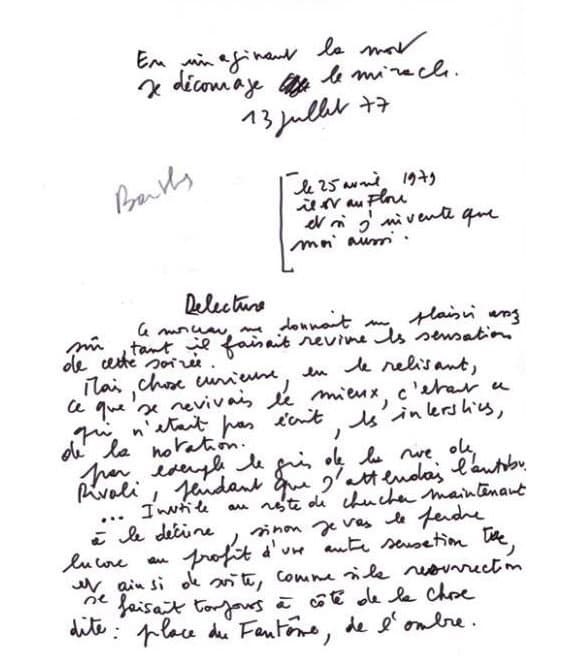 En imaginant la mort
je décourage le miracle.
13 juillet 77
Barthes
le 25 avril 1979
il est au Flore
et si j'invente que
moi aussi.
Relecture
Ce morceau me donnait un plaisir assez
sûr, tant il faisait revivre les sensations
de cette soirée.
Mais, chose curieuse, en le relisant,
ce que je revivais le mieux, c'était ce
qui n'était pas écrit, les interstices,
de la notation.
par exemple le gris de la rue de
Rivoli, pendant que j'attendais l'autobus.
... Inutile au reste de chercher maintenant
à le décrire, sinon je vais le perdre
encore au profit d'une autre sensation
et ainsi de suite, comme si la résurrection
se faisait toujours à côté de la chose
dite : place du Fantôme, de l'ombre.